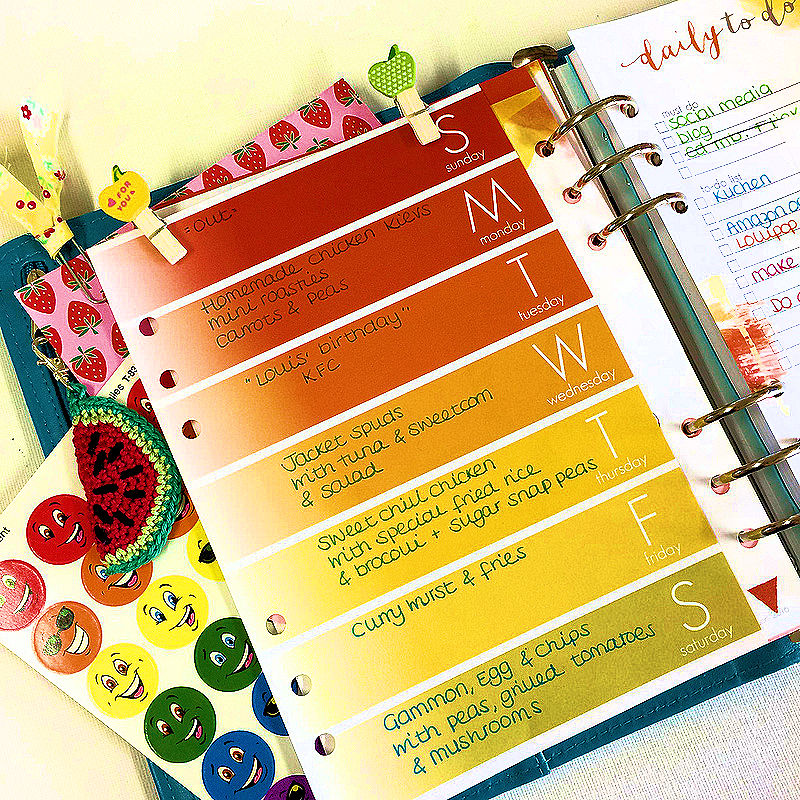 S
sunday
"OUT"
M
monday
Homemade chicken kievs
mini roasties
carrots & peas
T
tuesday
"Louis' birthday"
KFC
W
wednesday
Jacket spuds
with tuna & sweetcorn
& salad
T
thursday
Sweet chilli chicken
with special fried rice
& broccoli + sugar snap peas
F
friday
Curry wurst & fries
S
saturday
Gammon, Egg & Chips
with peas, grilled tomatoes
& mushrooms
daily to do
must do
social media
blog
to-do list
Kuchen
Amazon
Lollipop
make
Do
FOR
YOU